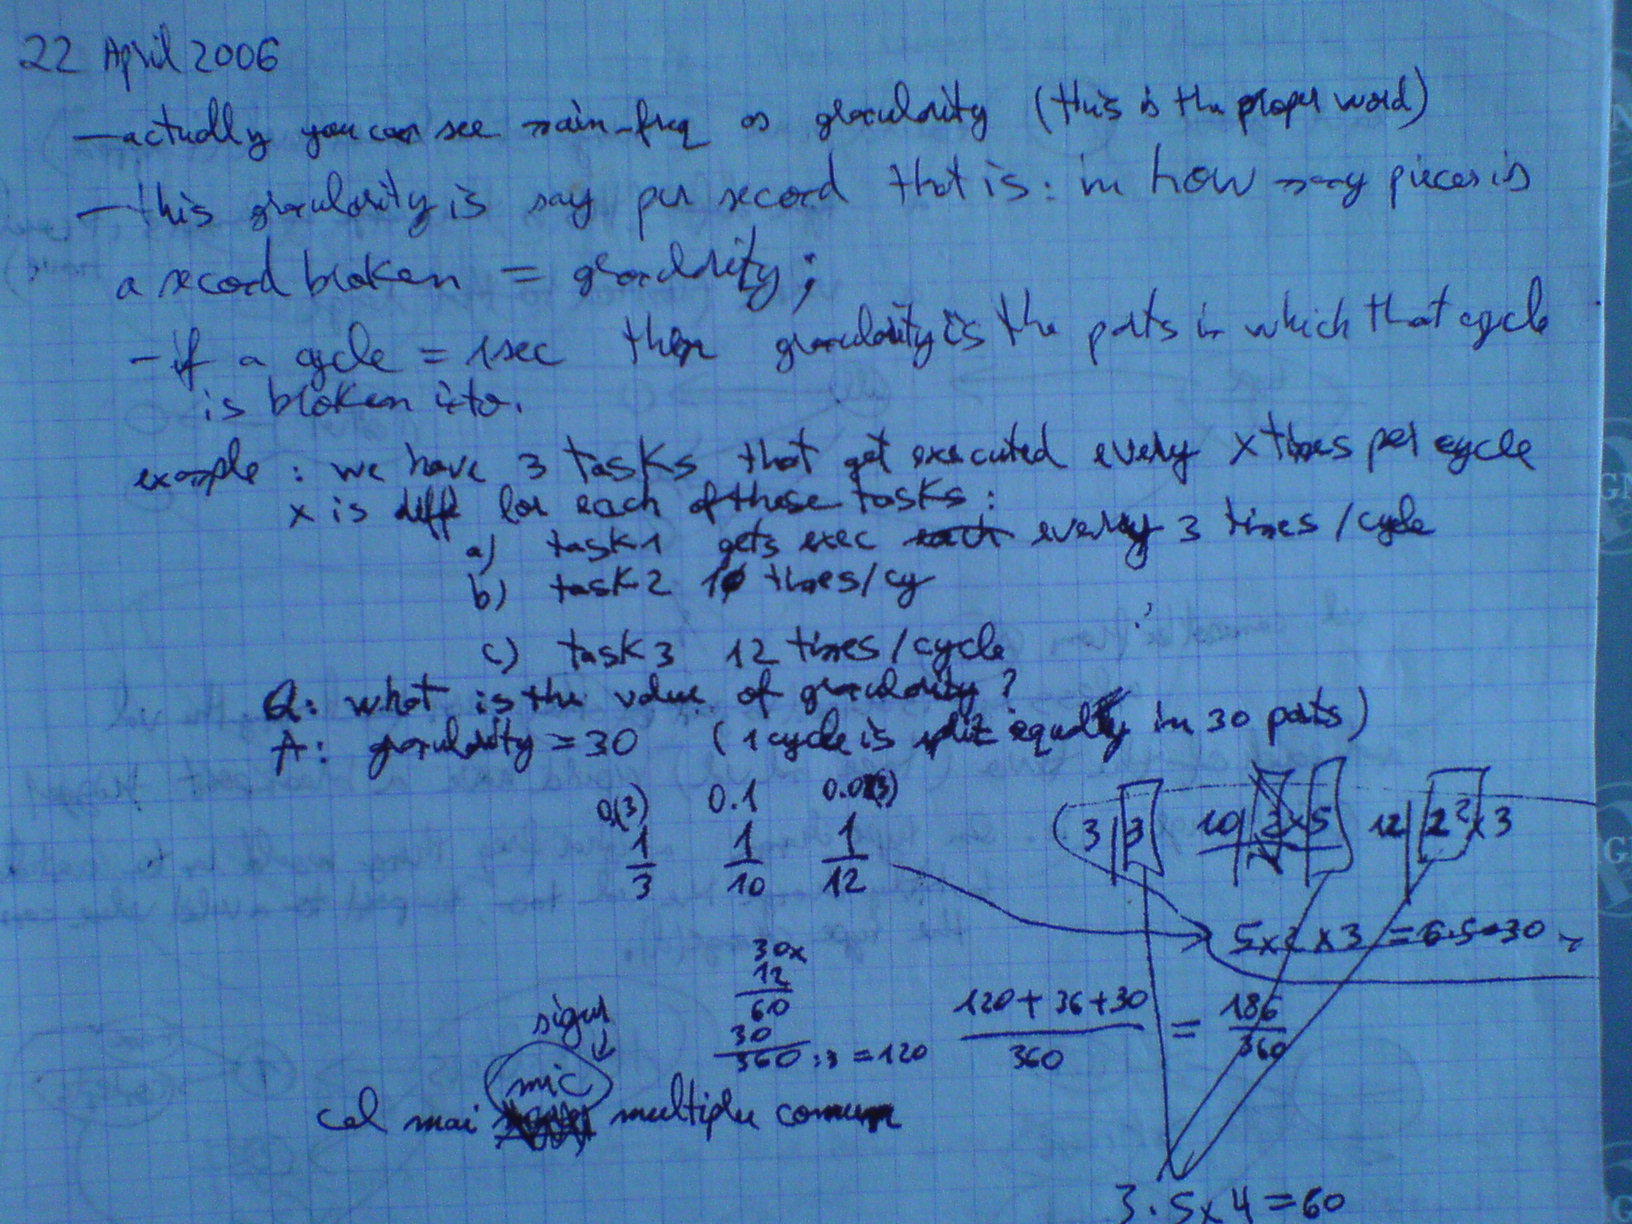 22 April 2006
- actually you can see main-freq as granularity (this is the proper word)
- this granularity is say per second that is: in how many pieces is
a second broken = granularity;
- if a cycle = 1sec then granularity is the parts in which that cycle
is broken into.
example: we have 3 tasks that get executed every x times per cycle
x is diff for each of these tasks:
a) task1 gets exec every 3 times/cycle
b) task2 10 times/cy
c) task3 12 times/cycle
Q: what is the value of granularity?
A: granularity = 30 (1 cycle is split equally in 30 parts)
0.(3) 0.1 0.08(3)
1/3 1/10 1/12
3|3 10|2x5 12|2²x3
5x2x3 = 6.5=30
30x
12
60
30
360 :3 = 120
120+36+30/360 = 186/360
sigur
mic
cel mai multiplu comun
3.5x4=60